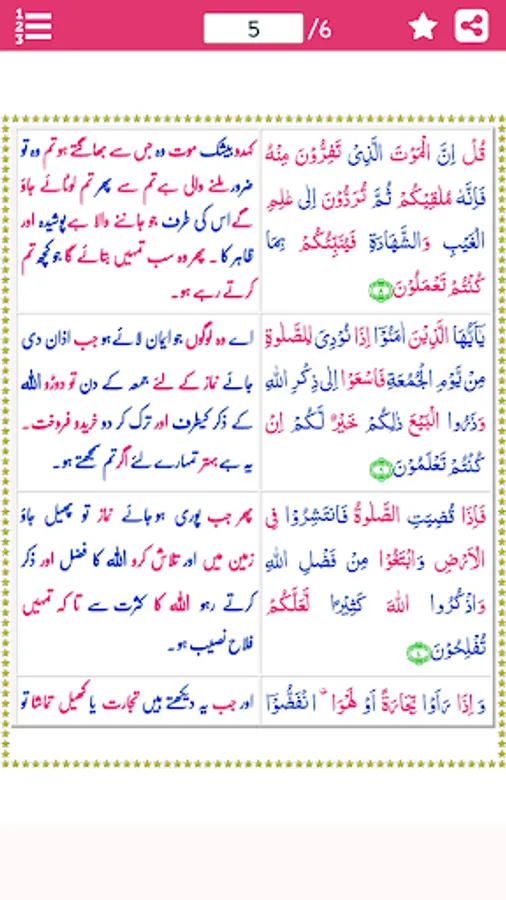 1
2
3
5
/6
قُلْ اِنَّ الْمَوْتَ الَّذِیْ تَفِرُّوْنَ مِنْهُ
فَاِنَّهٗ مُلٰقِیْكُمْ ثُمَّ تُرَدُّوْنَ اِلٰی عٰلِمِ
الْغَیْبِ وَالشَّهَادَةِ فَیُنَبِّئُكُمْ بِمَا
كُنْتُمْ تَعْمَلُوْنَ ۸
کہدو بیشک موت وہ جس سے بھاگتے ہو تم وہ تو
ضرور ملنے والی ہے تم سے پھر تم لوٹائے جاؤ
گے اس کی طرف جو جاننے والا ہے پوشیدہ اور
ظاہر کا ۔ پھر وہ سب تمہیں بتائے گا جو کچھ تم
کرتے رہے ہو۔
یٰۤاَیُّهَا الَّذِیْنَ اٰمَنُوْۤا اِذَا نُوْدِیَ لِلصَّلٰوةِ
مِنْ یَّوْمِ الْجُمُعَةِ فَاسْعَوْا اِلٰی ذِكْرِ اللّٰهِ
وَذَرُوا الْبَیْعَ ذٰلِكُمْ خَیْرٌ لَّكُمْ اِنْ
كُنْتُمْ تَعْلَمُوْنَ ۹
اے وہ لوگوں جو ایمان لائے ہو جب اذان دی
جائے نماز کے لئے جمعہ کے دن تو دوڑو اللہ
کے ذکر کیطرف اور ترک کر دو خریدو فروخت۔
یہ ہے بہتر تمہارے لئے اگر تم سمجھتے ہو۔
فَاِذَا قُضِیَتِ الصَّلٰوةُ فَانْتَشِرُوْا فِی
الْاَرْضِ وَابْتَغُوْا مِنْ فَضْلِ اللّٰهِ
وَاذْكُرُوا اللّٰهَ كَثِیْرًا لَّعَلَّكُمْ
تُفْلِحُوْنَ
پھر جب پوری ہو جائے نماز تو پھیل جاؤ
زمین میں اور تلاش کرو اللہ کا فضل اور ذکر
کرتے رہو اللہ کا کثرت سے تا کہ تمہیں
فلاح نصیب ہو۔
وَاِذَا رَاَوْا تِجَارَةً اَوْ لَهْوَا ۨ انْفَضُّوْۤا
اور جب یہ دیکھتے ہیں تجارت یا کھیل تماشا تو